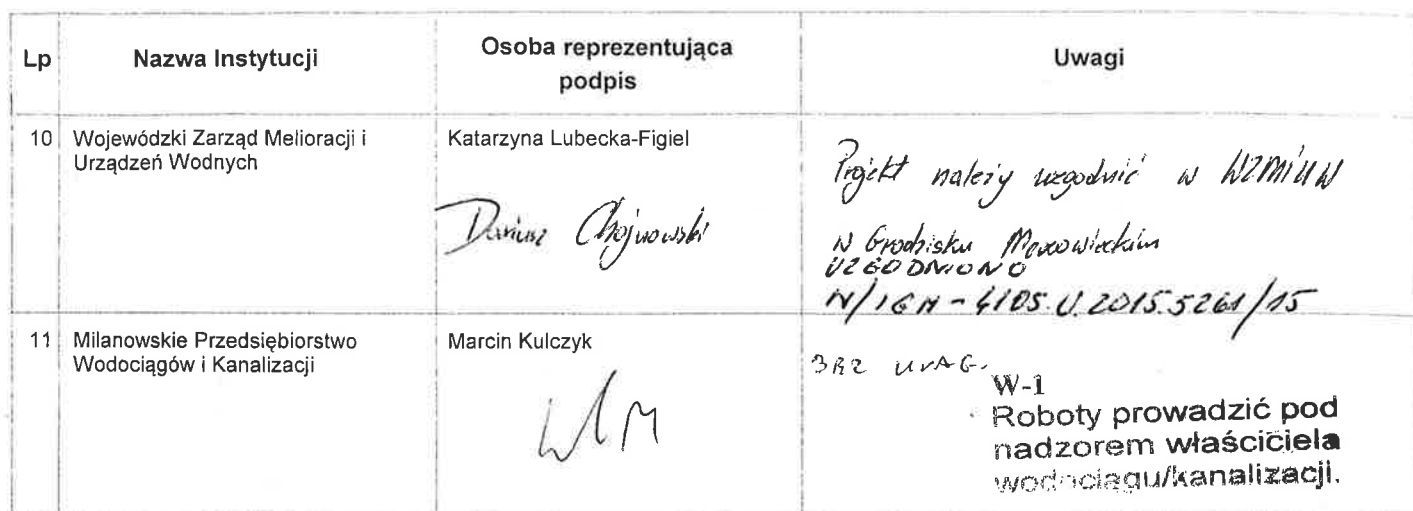 Lp Nazwa Instytucji Osoba reprezentująca podpis Uwagi
10 Wojewódzki Zarząd Melioracji i Urządzeń Wodnych
Katarzyna Lubecka-Figiel
Dariusz Chojnowski
Projekt należy uzgodnić w WZMiUW
w Grodzisku Mazowieckim
UZGODNIONO
4105.U.2015.5261/15
11 Milanowskie Przedsiębiorstwo
Wodociągów i Kanalizacji
Marcin Kulczyk
UWAG.
W-1
Roboty prowadzić pod
nadzorem właściciela
wodociągu/kanalizacji.